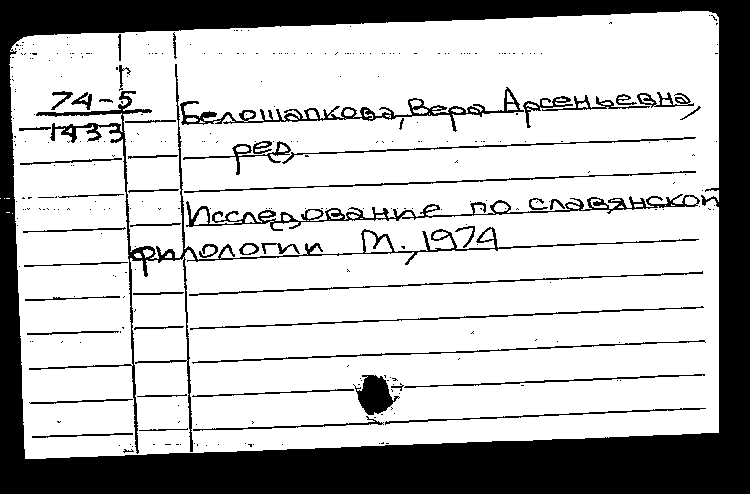 74-5
1433
Белошапкова, Вера Арсеньевна,
ред.
Исследование по славянской
филологии М., 1974